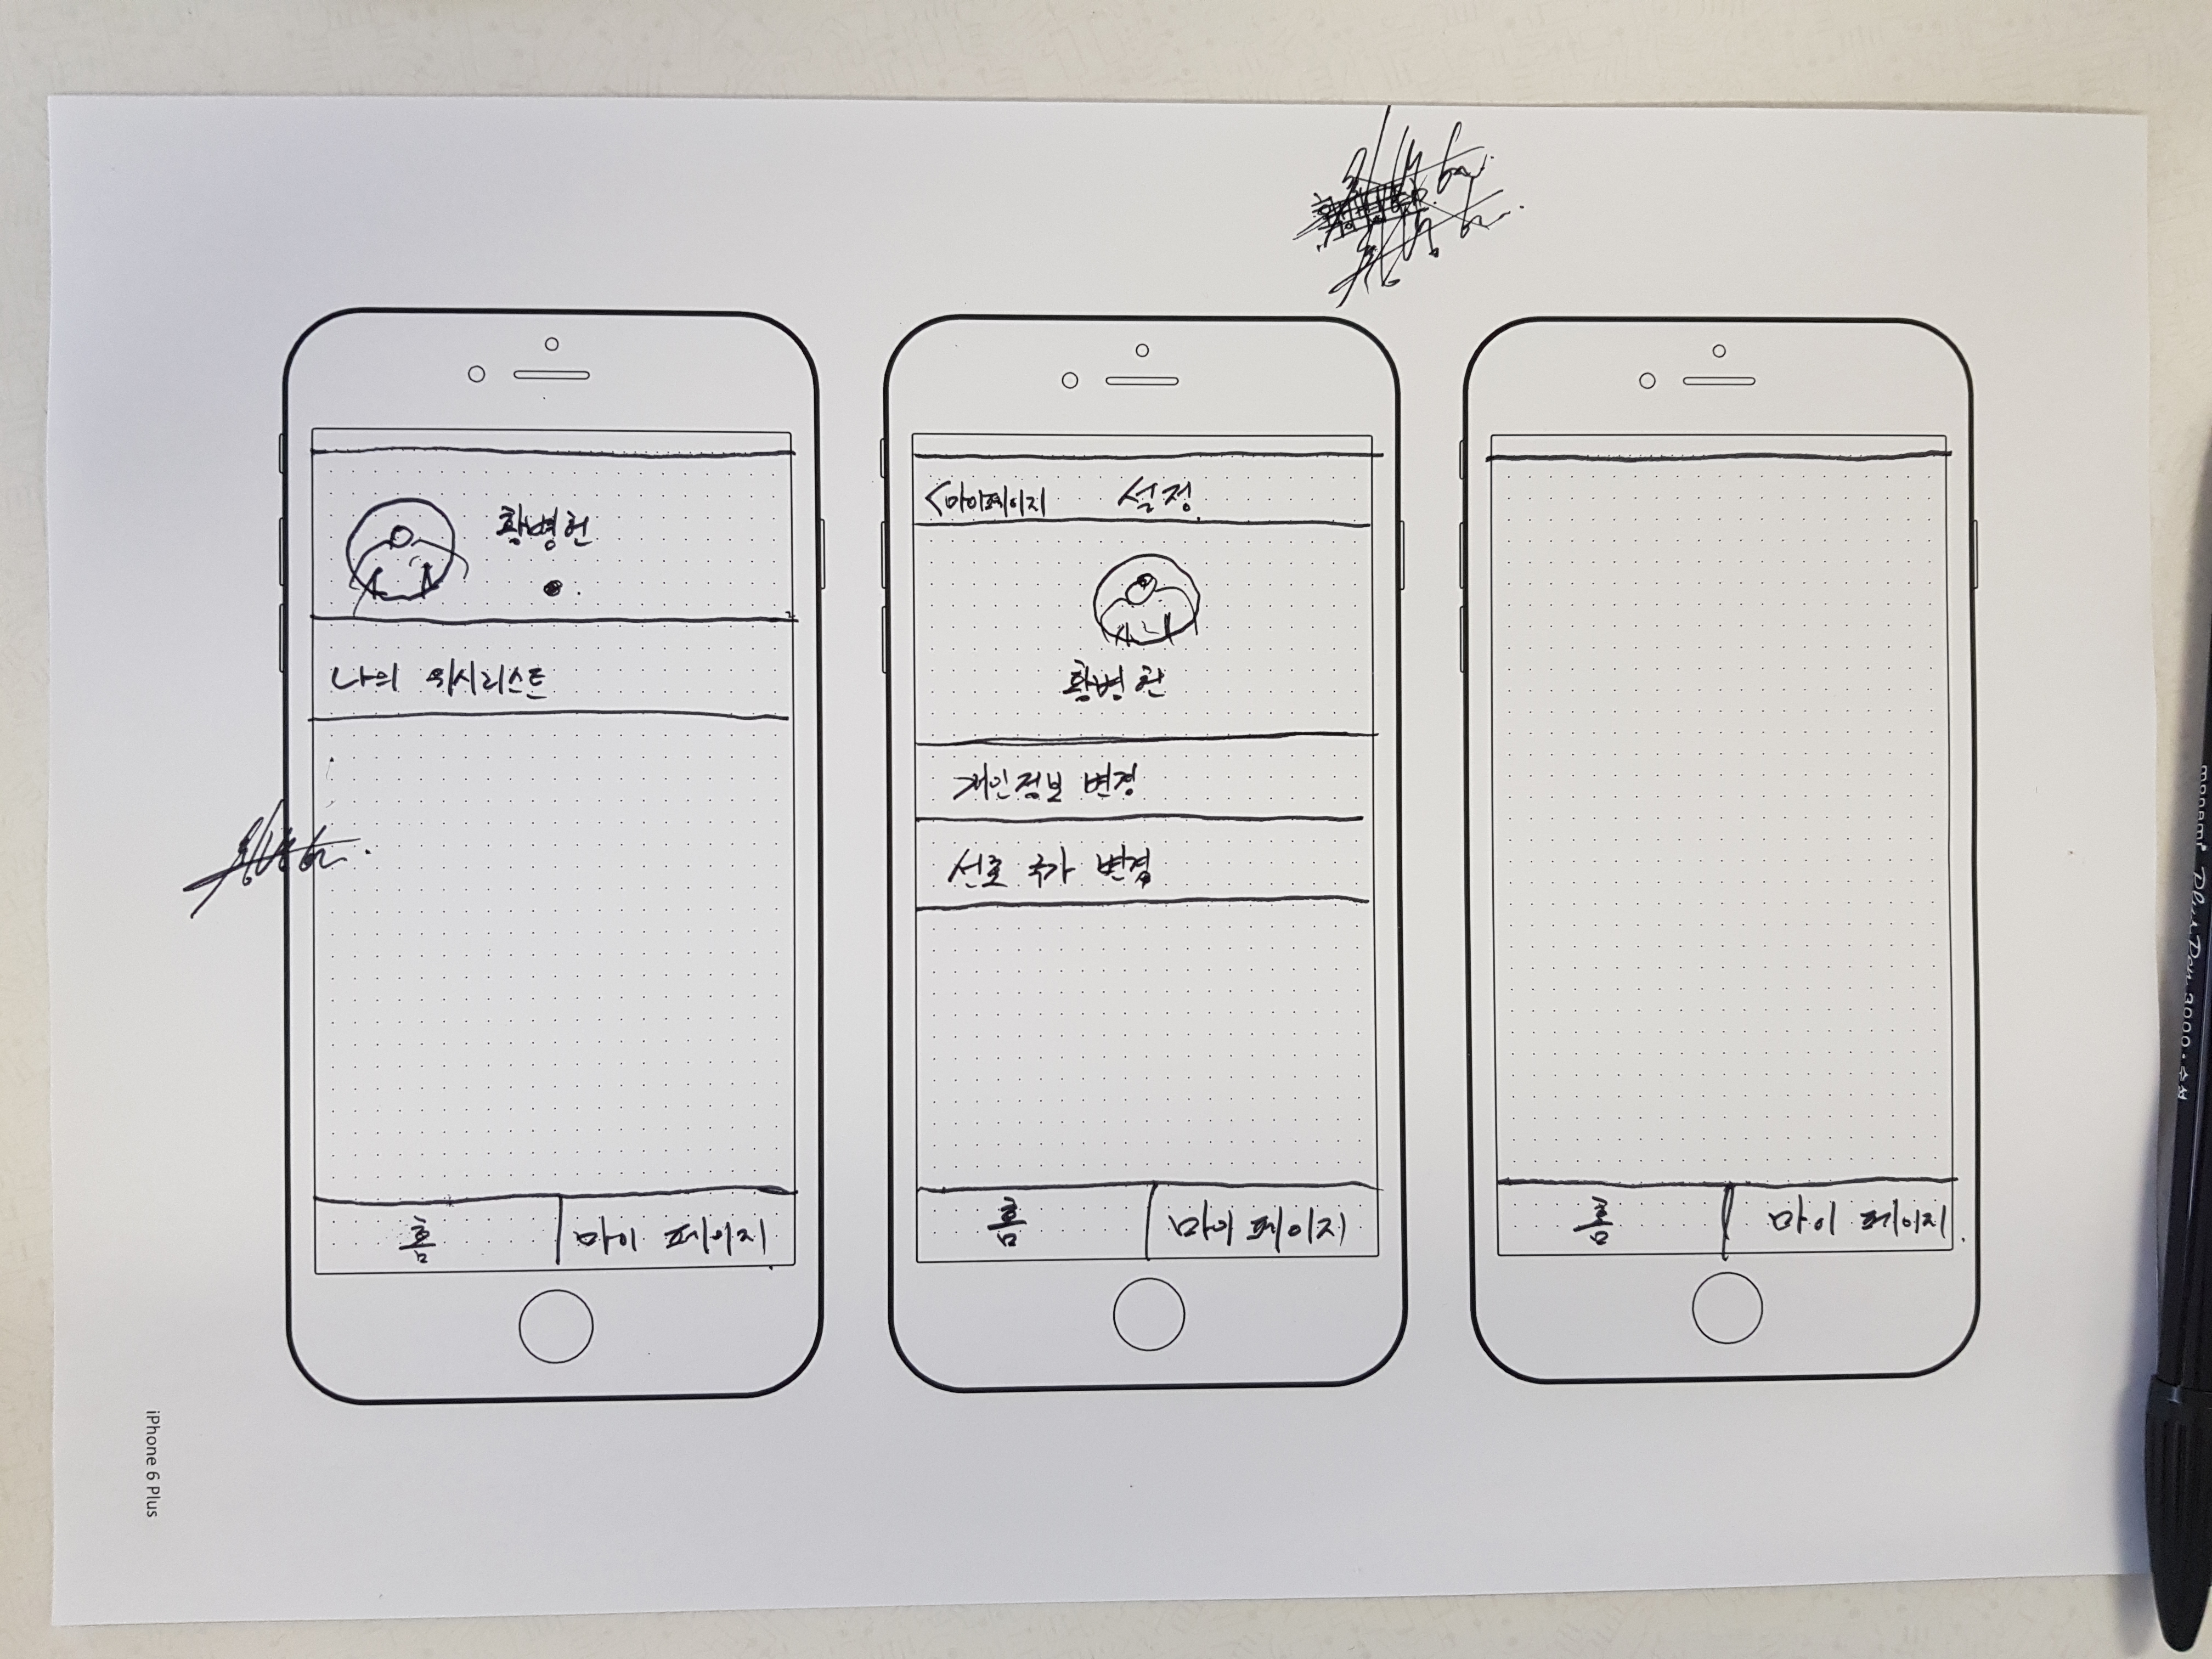 황병헌
나의 위시리스트
홈
마이 페이지
<마이페이지
설정
황병헌
개인정보 변경
선호 국가 변경
홈
마이 페이지
홈
마이 페이지
iPhone 6 Plus
monami Plus Pen 3000